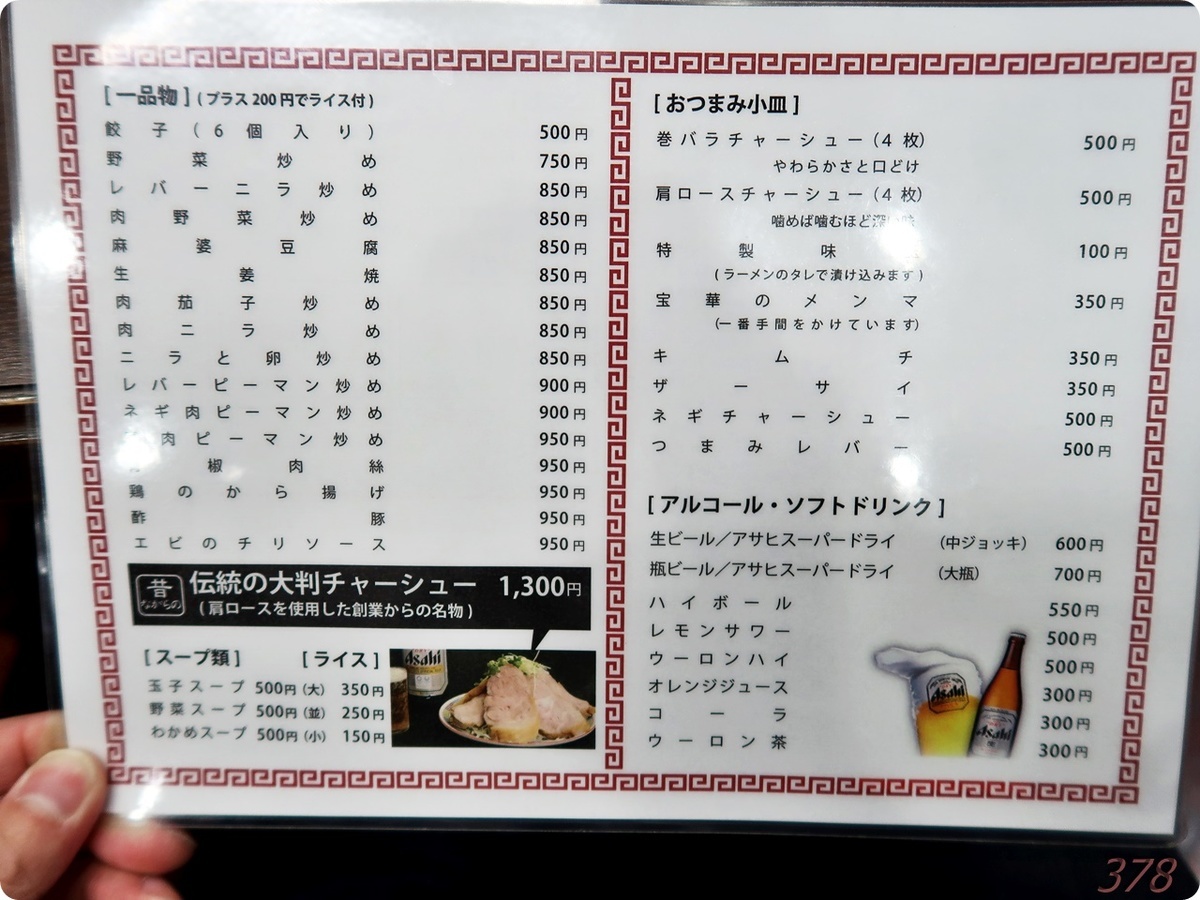 [一品物](プラス200円でライス付)
餃子(6個入り) 500円
野菜炒め 750円
レバーニラ炒め 850円
肉野菜炒め 850円
麻婆豆腐 850円
生姜焼 850円
肉茄子炒め 850円
肉ニラ炒め 850円
ニラと卵炒め 850円
レバーピーマン炒め 900円
ネギ肉ピーマン炒め 900円
肉ピーマン炒め 950円
椒肉絲 950円
鶏のから揚げ 950円
酢豚 950円
エビのチリソース 950円
昔ながらの
伝統の大判チャーシュー 1,300円
(肩ロースを使用した創業からの名物)
[スープ類] [ライス]
玉子スープ 500円 (大) 350円
野菜スープ 500円 (並) 250円
わかめスープ 500円 (小) 150円
Asahi
[おつまみ小皿]
巻バラチャーシュー(4枚) 500円
やわらかさと口どけ
肩ロースチャーシュー(4枚) 500円
噛めば噛むほど深い味
特製味 100円
(ラーメンのタレで漬け込みます)
宝華のメンマ 350円
(一番手間をかけています)
キムチ 350円
ザーサイ 350円
ネギチャーシュー 500円
つまみレバー 500円
[アルコール・ソフトドリンク]
生ビール/アサヒスーパードライ (中ジョッキ) 600円
瓶ビール/アサヒスーパードライ (大瓶) 700円
ハイボール 550円
レモンサワー 500円
ウーロンハイ 500円
オレンジジュース 300円
コーラ 300円
ウーロン茶 300円
Asahi
Asahi
378